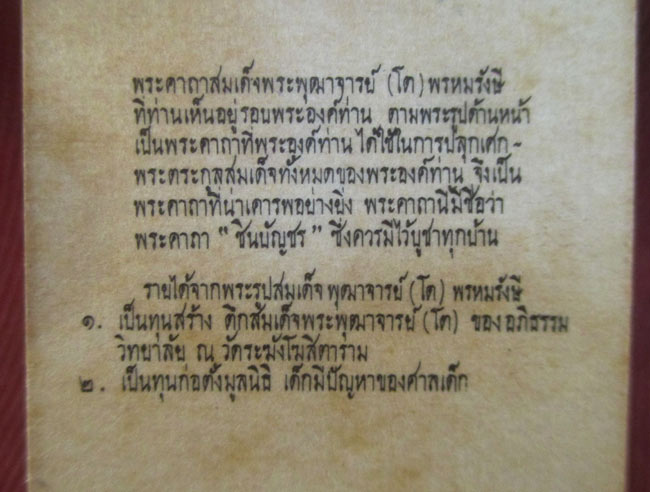 พระคาถาสมเด็จพระพุฒาจารย์ (โต) พรหมรังษี
ที่ท่านเห็นอยู่รอบพระองค์ท่าน ตามพระรูปด้านหน้า
เป็นพระคาถาที่พระองค์ท่านได้ใช้ในการปลุกเศก-
พระตระกูลสมเด็จทั้งหมดของพระองค์ท่าน จึงเป็น
พระคาถาที่น่าเคารพอย่างยิ่ง พระคาถานี้มีชื่อว่า
พระคาถา " ชินบัญชร " ซึ่งควรมีไว้บูชาทุกบ้าน
รายได้จากพระรูปสมเด็จพุฒาจารย์ (โต) พรหมรังษี
๑. เป็นทุนสร้าง ตึกสมเด็จพระพุฒาจารย์ (โต) ของอภิธรรม
วิทยาลัย ณ วัดระฆังโฆสิตาราม
๒. เป็นทุนก่อตั้งมูลนิธิ เด็กมีปัญหาของศาลเด็ก